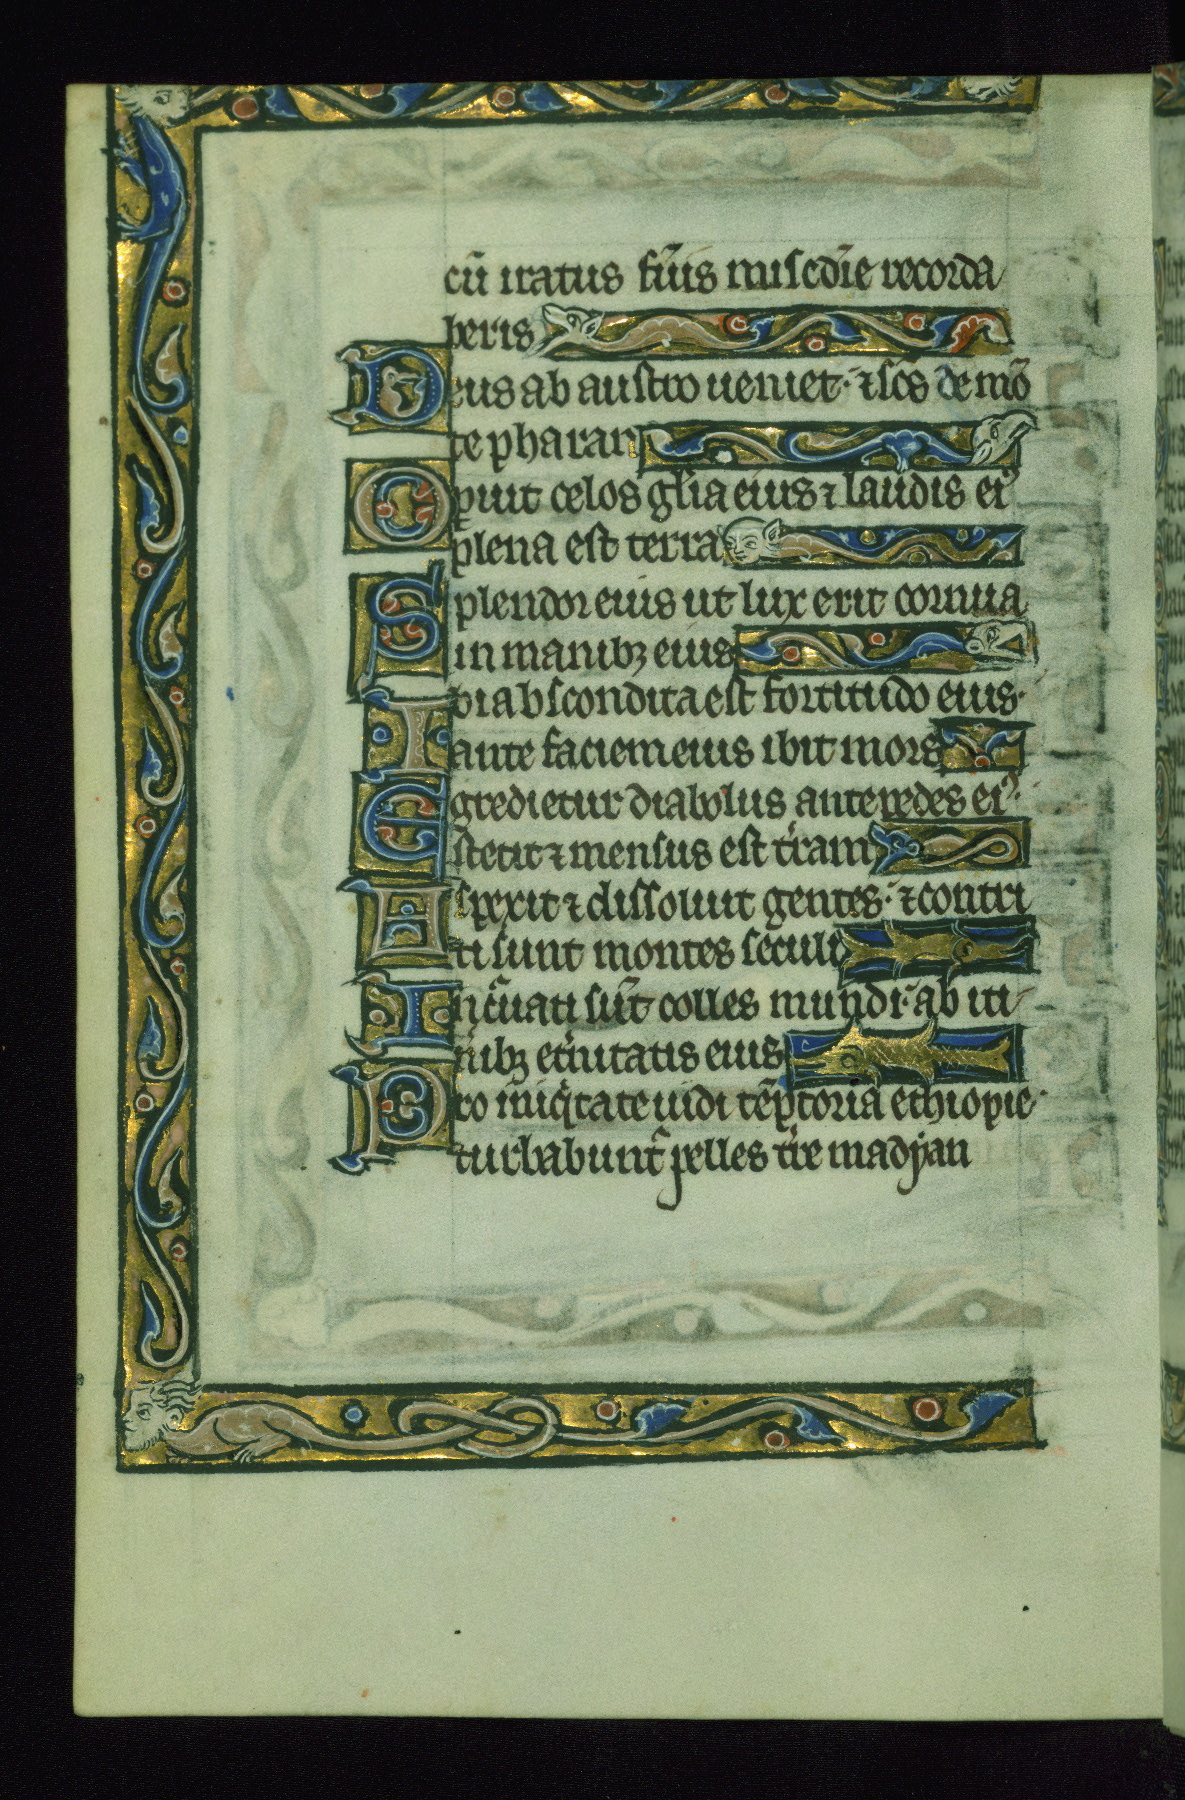 cū iratus fūis misc̄die recorda
beris
Deus ab austro ueniet· ⁊ sc̄s de mō
te pharan
Operuit celos gl̄ia eius ⁊ laudis eiꝰ
plena est terra
Splendor eius ut lux erit cornua
in manibꝫ eius
Ibi abscondita est fortitudo eius·
ante faciem eius ibit mors
Egredietur diabolus ante pedes eiꝰ·
stetit ⁊ mensus est t̄ram
Aspexit ⁊ dissoluit gentes· ⁊ contri
ti sunt montes seculi
Inc̄uati sūt colles mundi· ab iti
n̄ibꝫ et̄nitatis eius
Pro iniq̇tate uidi tēptoria ethiopie·
turbabunt᷑ pelles t̄re madyan